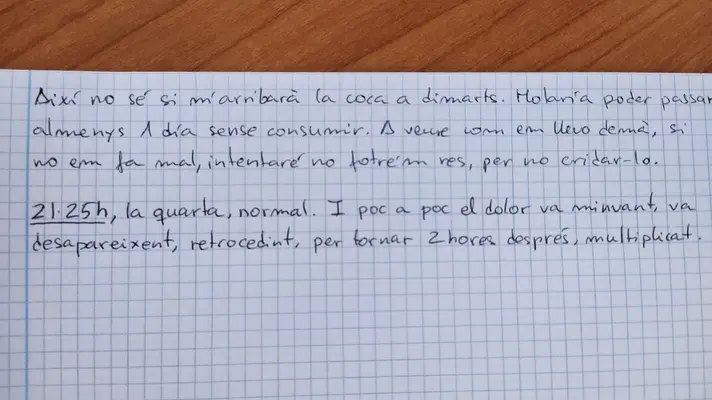 Així no sé si m'arribarà la coca a dimarts. Molaria poder passar
almenys 1 dia sense consumir. A veure com em llevo demà, si
no em fa mal, intentaré no fotre'm res, per no cridar-lo.
21.25h, la quarta, normal. I poc a poc el dolor va minvant, va
desapareixent, retrocedint, per tornar 2 hores després, multiplicat.